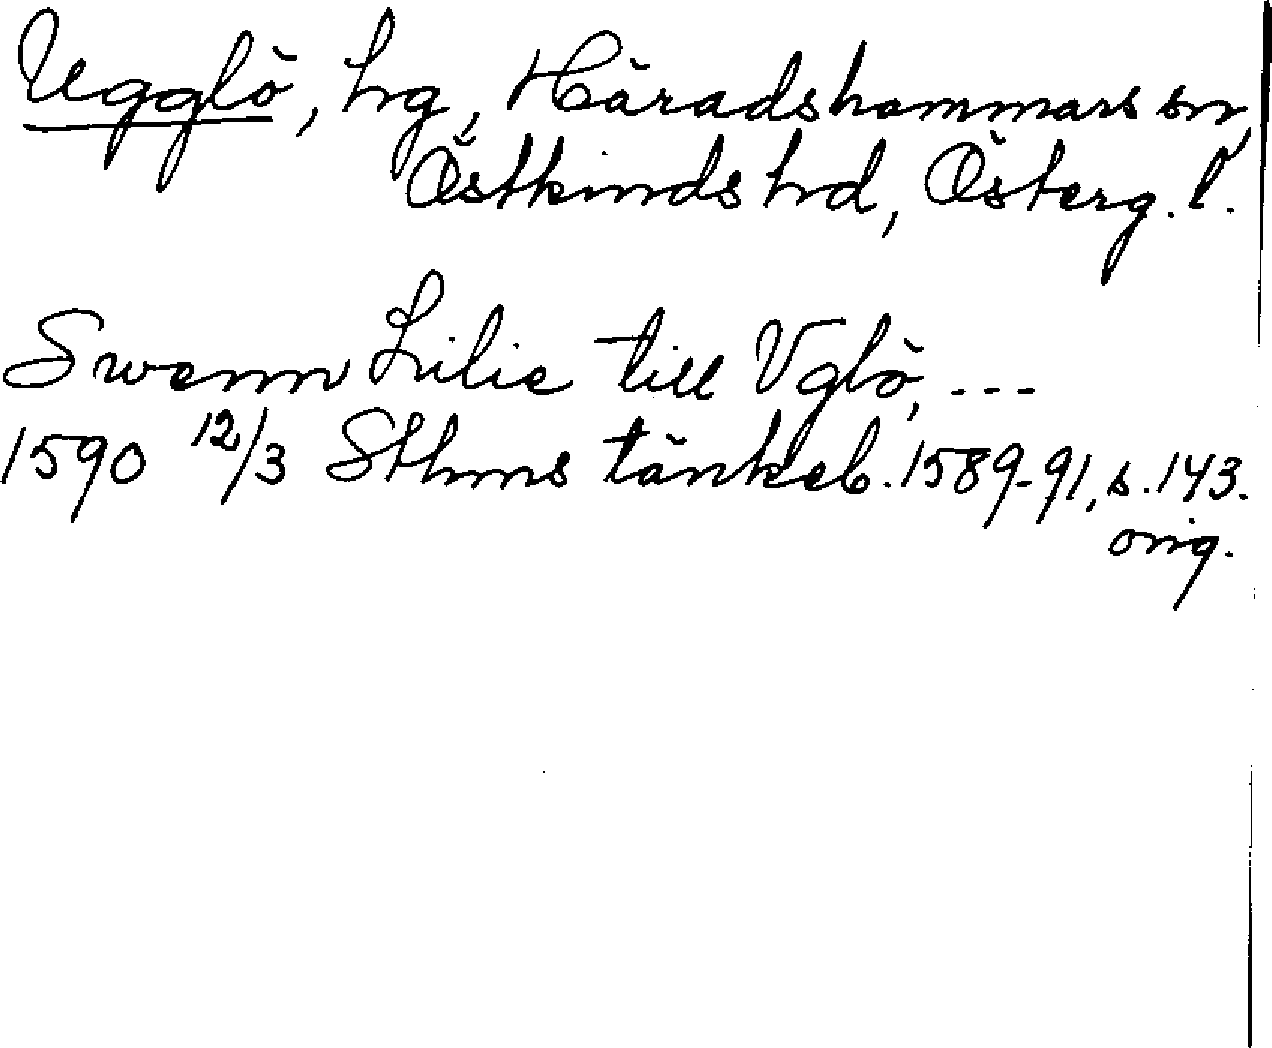 Ugglö, hg, Häradshammars sn,
Östkinds hd, Österg. l.
Swenn Lilie till Vglö, ---
1590 12/3 Sthms tänkeb. 1589-91, s. 143.
orig.